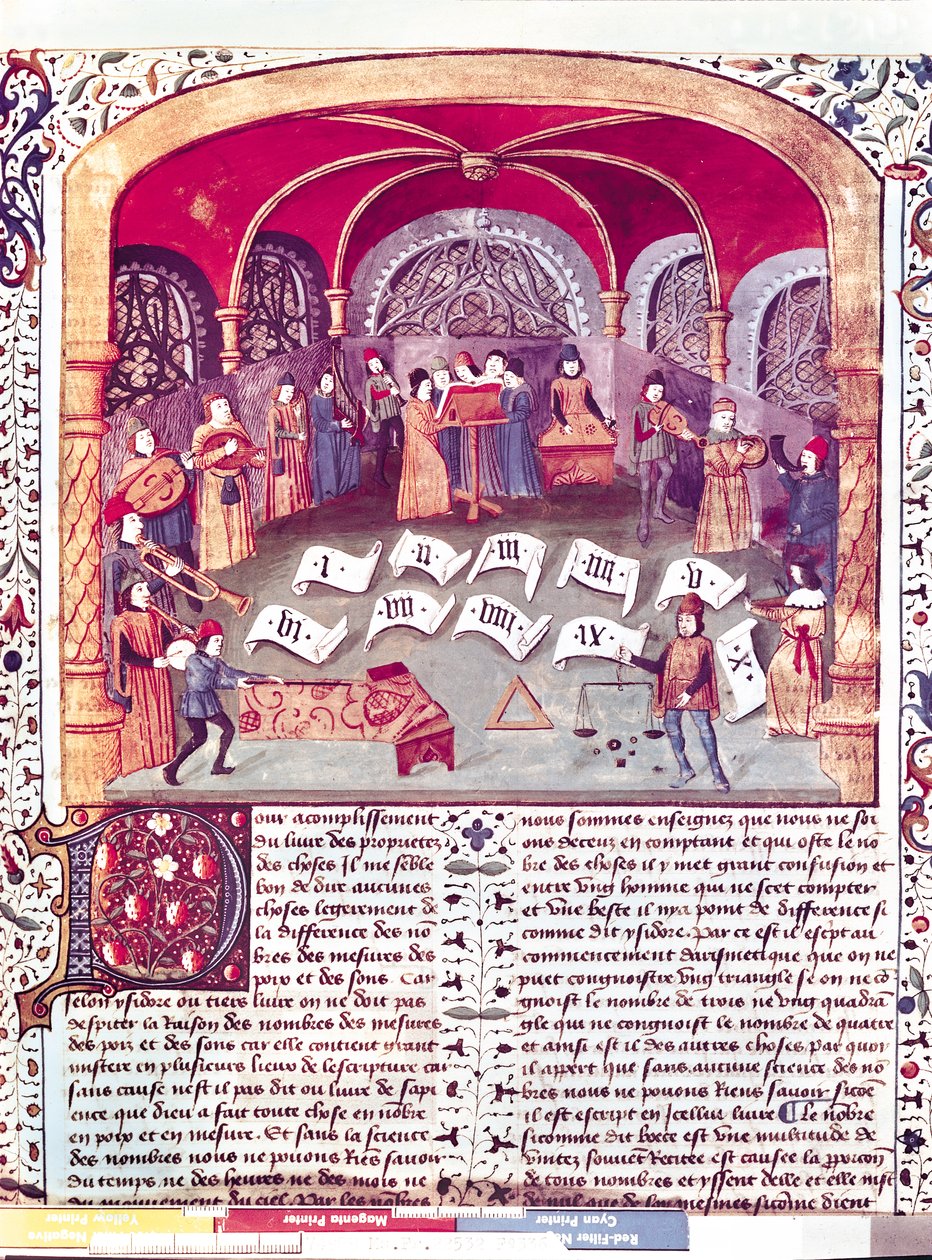 ·I·
·II·
·III·
·IIII·
·V·
·VI·
·VII·
·VIII·
·IX·
·X·
Pour acomplissement
du livre des proprietez
des choses Il me sēble
bon de dire aucunes
choses legierement de
la difference des no
bres des mesures des
poix et des sons. Car
selon ysidore ou tiers livre on ne doit pas
despiter la Raison des nombres des mesures
des poiz et des sons car elle contient grant
mistere en plusieurs lieux de lescripture car
sans cause nest il pas dit ou livre de sapi
ence que dieu a fait toute chose en nōbre
en poix et en mesure. Et sans la science
des nombres nous ne pouons Riēs savoir
du temps ne des heures ne des mois ne
du mouvement du ciel. Par les nōbres
nous sommes enseignez que nous ne soi
ons deceuz en comptant et qui oste le nō
bre des choses il y met grant confusion et
entre ung homme qui ne scet compter
et une beste il ny a point de difference si
comme dit ysidore. Par ce est il escpt au
commencement darismetique que on ne
puet congnoistre ung triangle se on ne cō
gnoist le nombre de trois ne ung quadrā
gle qui ne congnoist le nombre de quatre
et ainsi est il des autres choses par quoy
il appert que sans aucune science des nō
bres nous ne pouons Riens savoir sicōe
il est escript en Icellui livre ¶ Le nōbre
sicomme dit boece est une multitude de
unitez souvēt Recitee
de tous nombres et yssent delle et elle nist
Yellow Printer
Magenta Printer
Cyan Printer